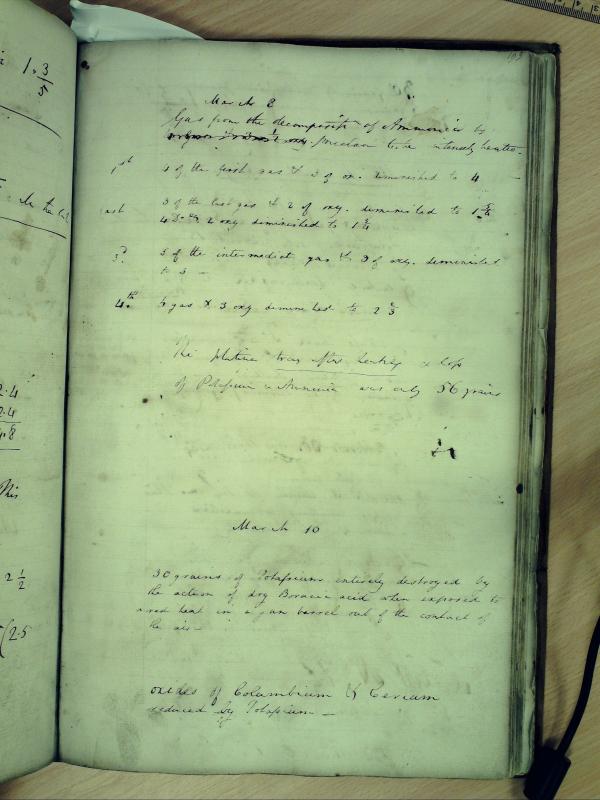 1.3/5
103
March 8
Gas from the decomposit[n] of Ammonia by
porcelain tube intensely heated.
1st 4 of the first gas & 3 of ox. diminished to 4
2nd 3 of the last gas & 2 of oxy. diminished to 1
2 oxy diminished to 1 3/4
3d. 5 of the intermediate gas & 3 of oxy. diminished
to 3 —
4th. gas & 3 oxy diminished to 2
The platina tray after heating & loss
of Potassium & Ammonia was only 56 grains
2.4
2.4
4.8
This
2 1/2
(2.5
March 10
30 grains of Potassium entirely destroyed by
the action of dry Boracic acid when exposed to
a red heat in a gun barrel out of the contact of
the air —
oxides of Columbium & Cerium
reduced by Potassium —